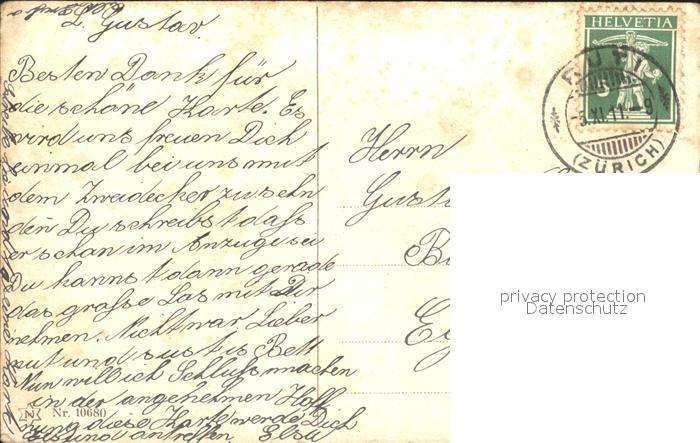 L. Gustav.
Besten Dank für
die schöne Karte. Es
wird uns freuen Dich
einmal bei uns mit
dem Zweidecker zu sehn
den Du schreibst dass
er schon im Anzuge sei
Du kannst dann gerade
das grosse Las mit Dir
nehmen. Nicht war Lieber
gut und sust is Bett
Nun will ich Schluss machen
in der angenehmen Hoff
nung diese Karte werde Dich
gsund antreffen Elsa
Nr. 10680
HELVETIA
5
RÜTI
-5.XI.11.-9
(ZÜRICH)
Herrn
Gust
B
E
privacy protection
Datenschutz